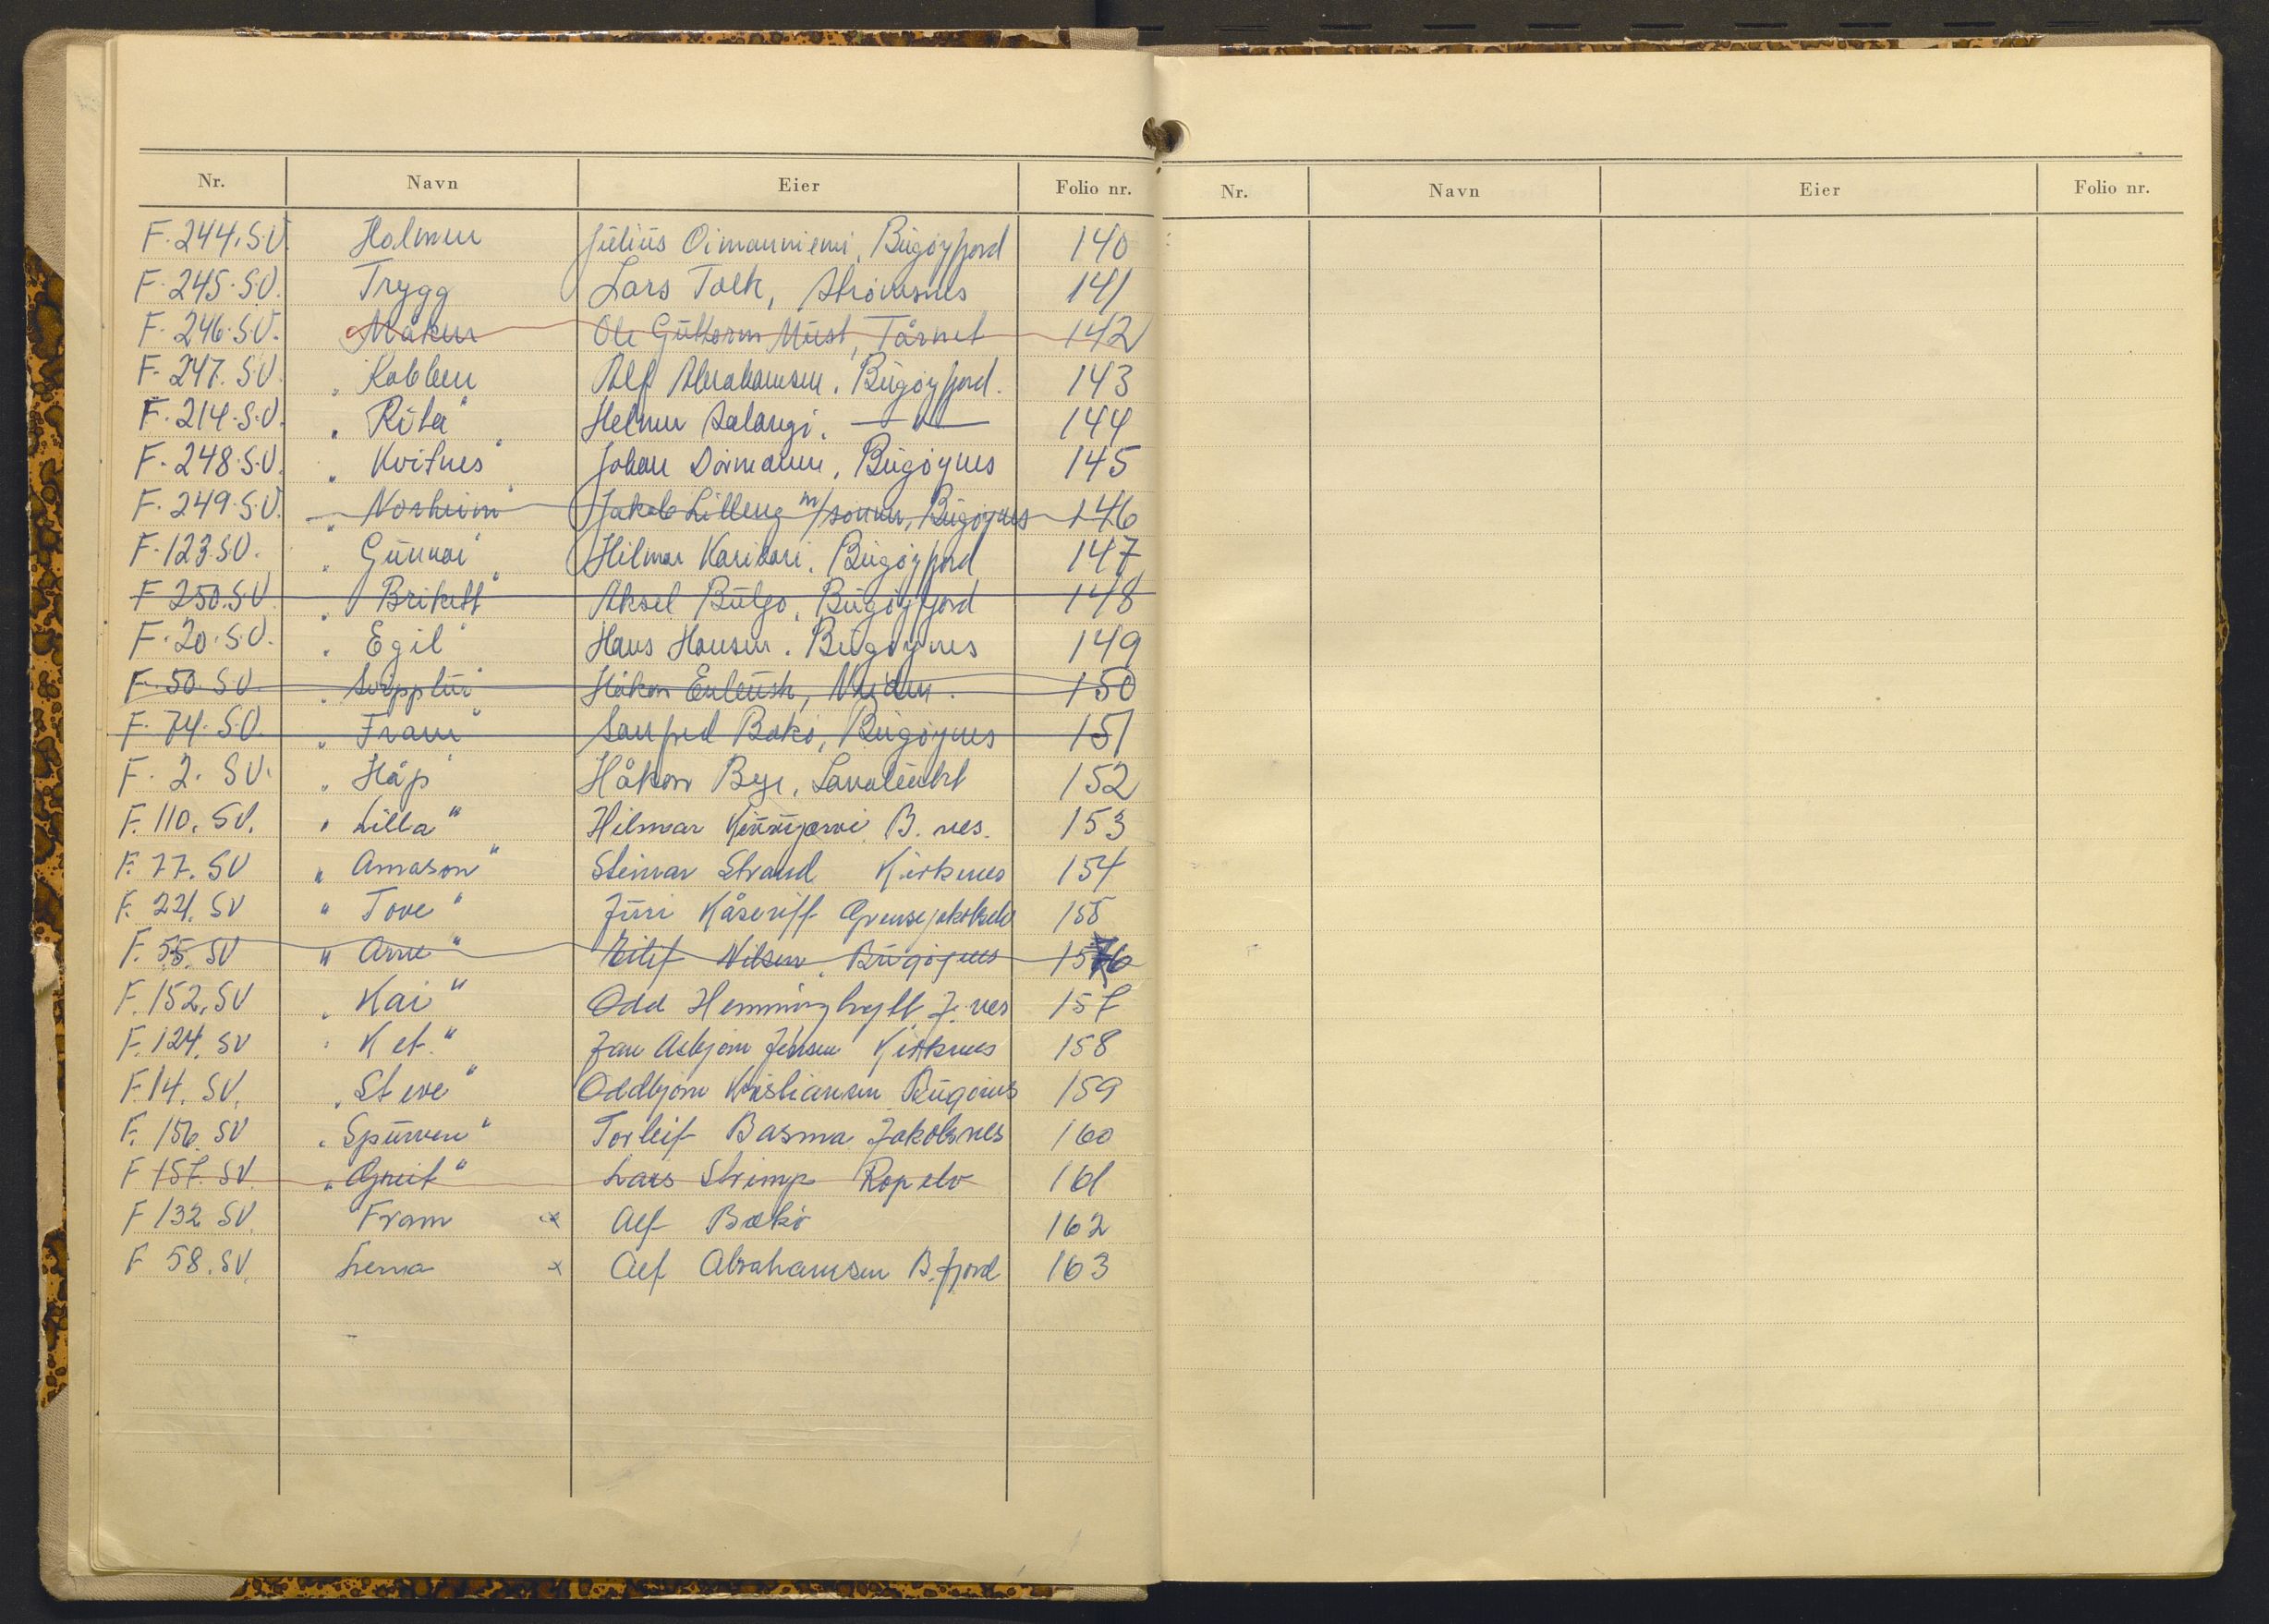 Nr. Navn Eier Folio nr.
F. 244. S.V. Holmen Julius Oimanniemi, Bugøyfjord 140
F. 245. S.V. Trygg Lars Tolk, 141
F. 246. S.V. Måken Ole Guttorm Must, Tårnet 142
F. 247. S.V. „Kobben Alf Abrahamsen. Bugøyfjord. 143
F. 214. S.V. „Rita" Helmer Salangi. —"— 144
F. 248. S.V. „Kvitnes" Johan Dørmænen, Bugøynes 145
F. 249. S.V. „Norheim" Jakob Lilleng m/sønner, Bugøynes 146
F. 123 S.V. „Gunnar" Hilmar Karikari. Bugøyfjord 147
F 250. S.V. „Brikett" Aksel Bulgo, Bugøyfjord 148
F. 20. S.V. „Egil" Hans Hansen. Bugøynes 149
F. 50. S.V. Håkon 150
F. 74. S.V. „Fram" Sanfred Bakø, Bugøynes 151
F. 2. S.V. „Håp" Håkon Bye, 152
F. 110. SV. „Lilla" Hilmar B. nes. 153
F. 77. SV „Amason" Steinar Strand Kirkenes 154
F. 221. SV „Tove" Juri Kåseriff Grensejakobselv 155
F. 55. SV „Arne" Eilif Nilsen. Bugøynes 156
F. 152. SV „Kai" Odd Hemminghytt J. nes 157
F. 124. SV „Ket." Jan Asbjørn Jensen Kirkenes 158
F. 14. SV. „Steve" Oddbjørn Kristiansen Bugøines 159
F. 156. SV „Spurven" Torleif Basma Jakobsnes 160
F 157. SV. „Greit" Lars Strimp Ropelv 161
F 132 SV. Fram x Alf Bakø 162
F 58. SV. Lema x Alf Abrahamsen B. fjord 163
Nr. Navn Eier Folio nr.